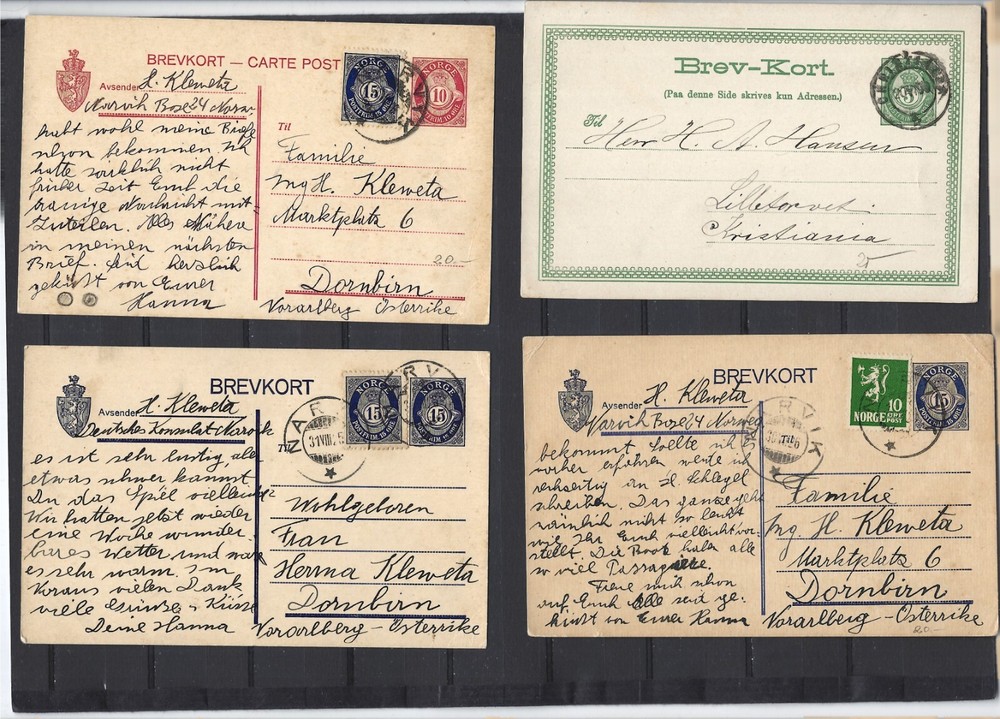 BREVKORT — CARTE POST
Avsender H. Kleweta
Narvik Box 24 Norw.
habt wohl meine Briefe
schon bekommen. Ich
hatte wirklich nicht
früher Zeit Euch die
traurige Nachricht mit
zuteilen. Alles Nähere
in meinen nächsten
Brief. Seid herzlich
geküsst von Eurer
Hanna
NORGE
15
POSTFRIM. 15 ØRE
NORGE
10
POSTFRIM. 10 ØRE
Til
Familie
Ing H. Kleweta
Marktplatz 6
20.-
Dornbirn
Vorarlberg Österrike
Brev-Kort.
(Paa denne Side skrives kun Adressen.)
Til
Herr H. A. Hansen
Lilletorvet
Kristiania
25
BREVKORT
Avsender H. Kleweta
Deutsches Konsulat Narvik
es ist sehr lustig, aber
etwas schwer kannst
Du das Spiel vielleicht?
Wir hatten jetzt wieder
eine Woche wunder
bares Wetter und war
es sehr warm. Im
Voraus vielen Dank,
viele Grüsse + Küsse
Deine Hanna
NORGE
15
NORGE
15
POSTFRIM. 15 ØRE
NARVIK
31 VIII
Til
Wohlgeboren
Frau
Herma Kleweta
Dornbirn
Vorarlberg - Österrike
BREVKORT
Avsender H. Kleweta
Narvik Box 24 Norweg.
bekommt. Sollte ich
früher erfahren werde ich
rechzeitig an H. Schlegel
schreiben. Das ganze geht
nämlich nicht so leicht
wie Ihr Euch vielleicht vor-
stellt. Die Boote haben alle
so viel Passagiere.
Freue mich schon
auf Euch Alle seid ge-
küsst von Eurer Hanna
10
ØRE
NORGE POST
15
NARVIK
Familie
Ing H. Kleweta
Marktplatz 6
Dornbirn
Vorarlberg - Österrike
20.-